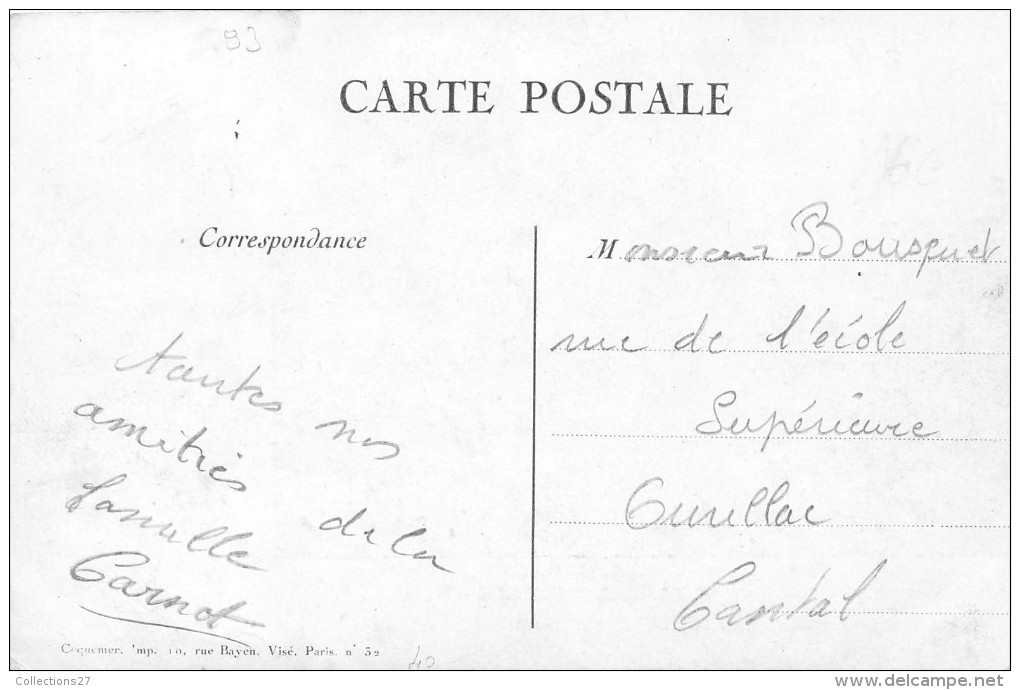 93
CARTE POSTALE
Correspondance
Monsieur Bousquet
rue de l'école
Supérieure
Aurillac
Cantal
toutes nos
amitiés de la
famille
Carnot
Coquemer, Imp. 10, rue Bayen. Visé, Paris. n° 32
40
Collections27
www.delcampe.net